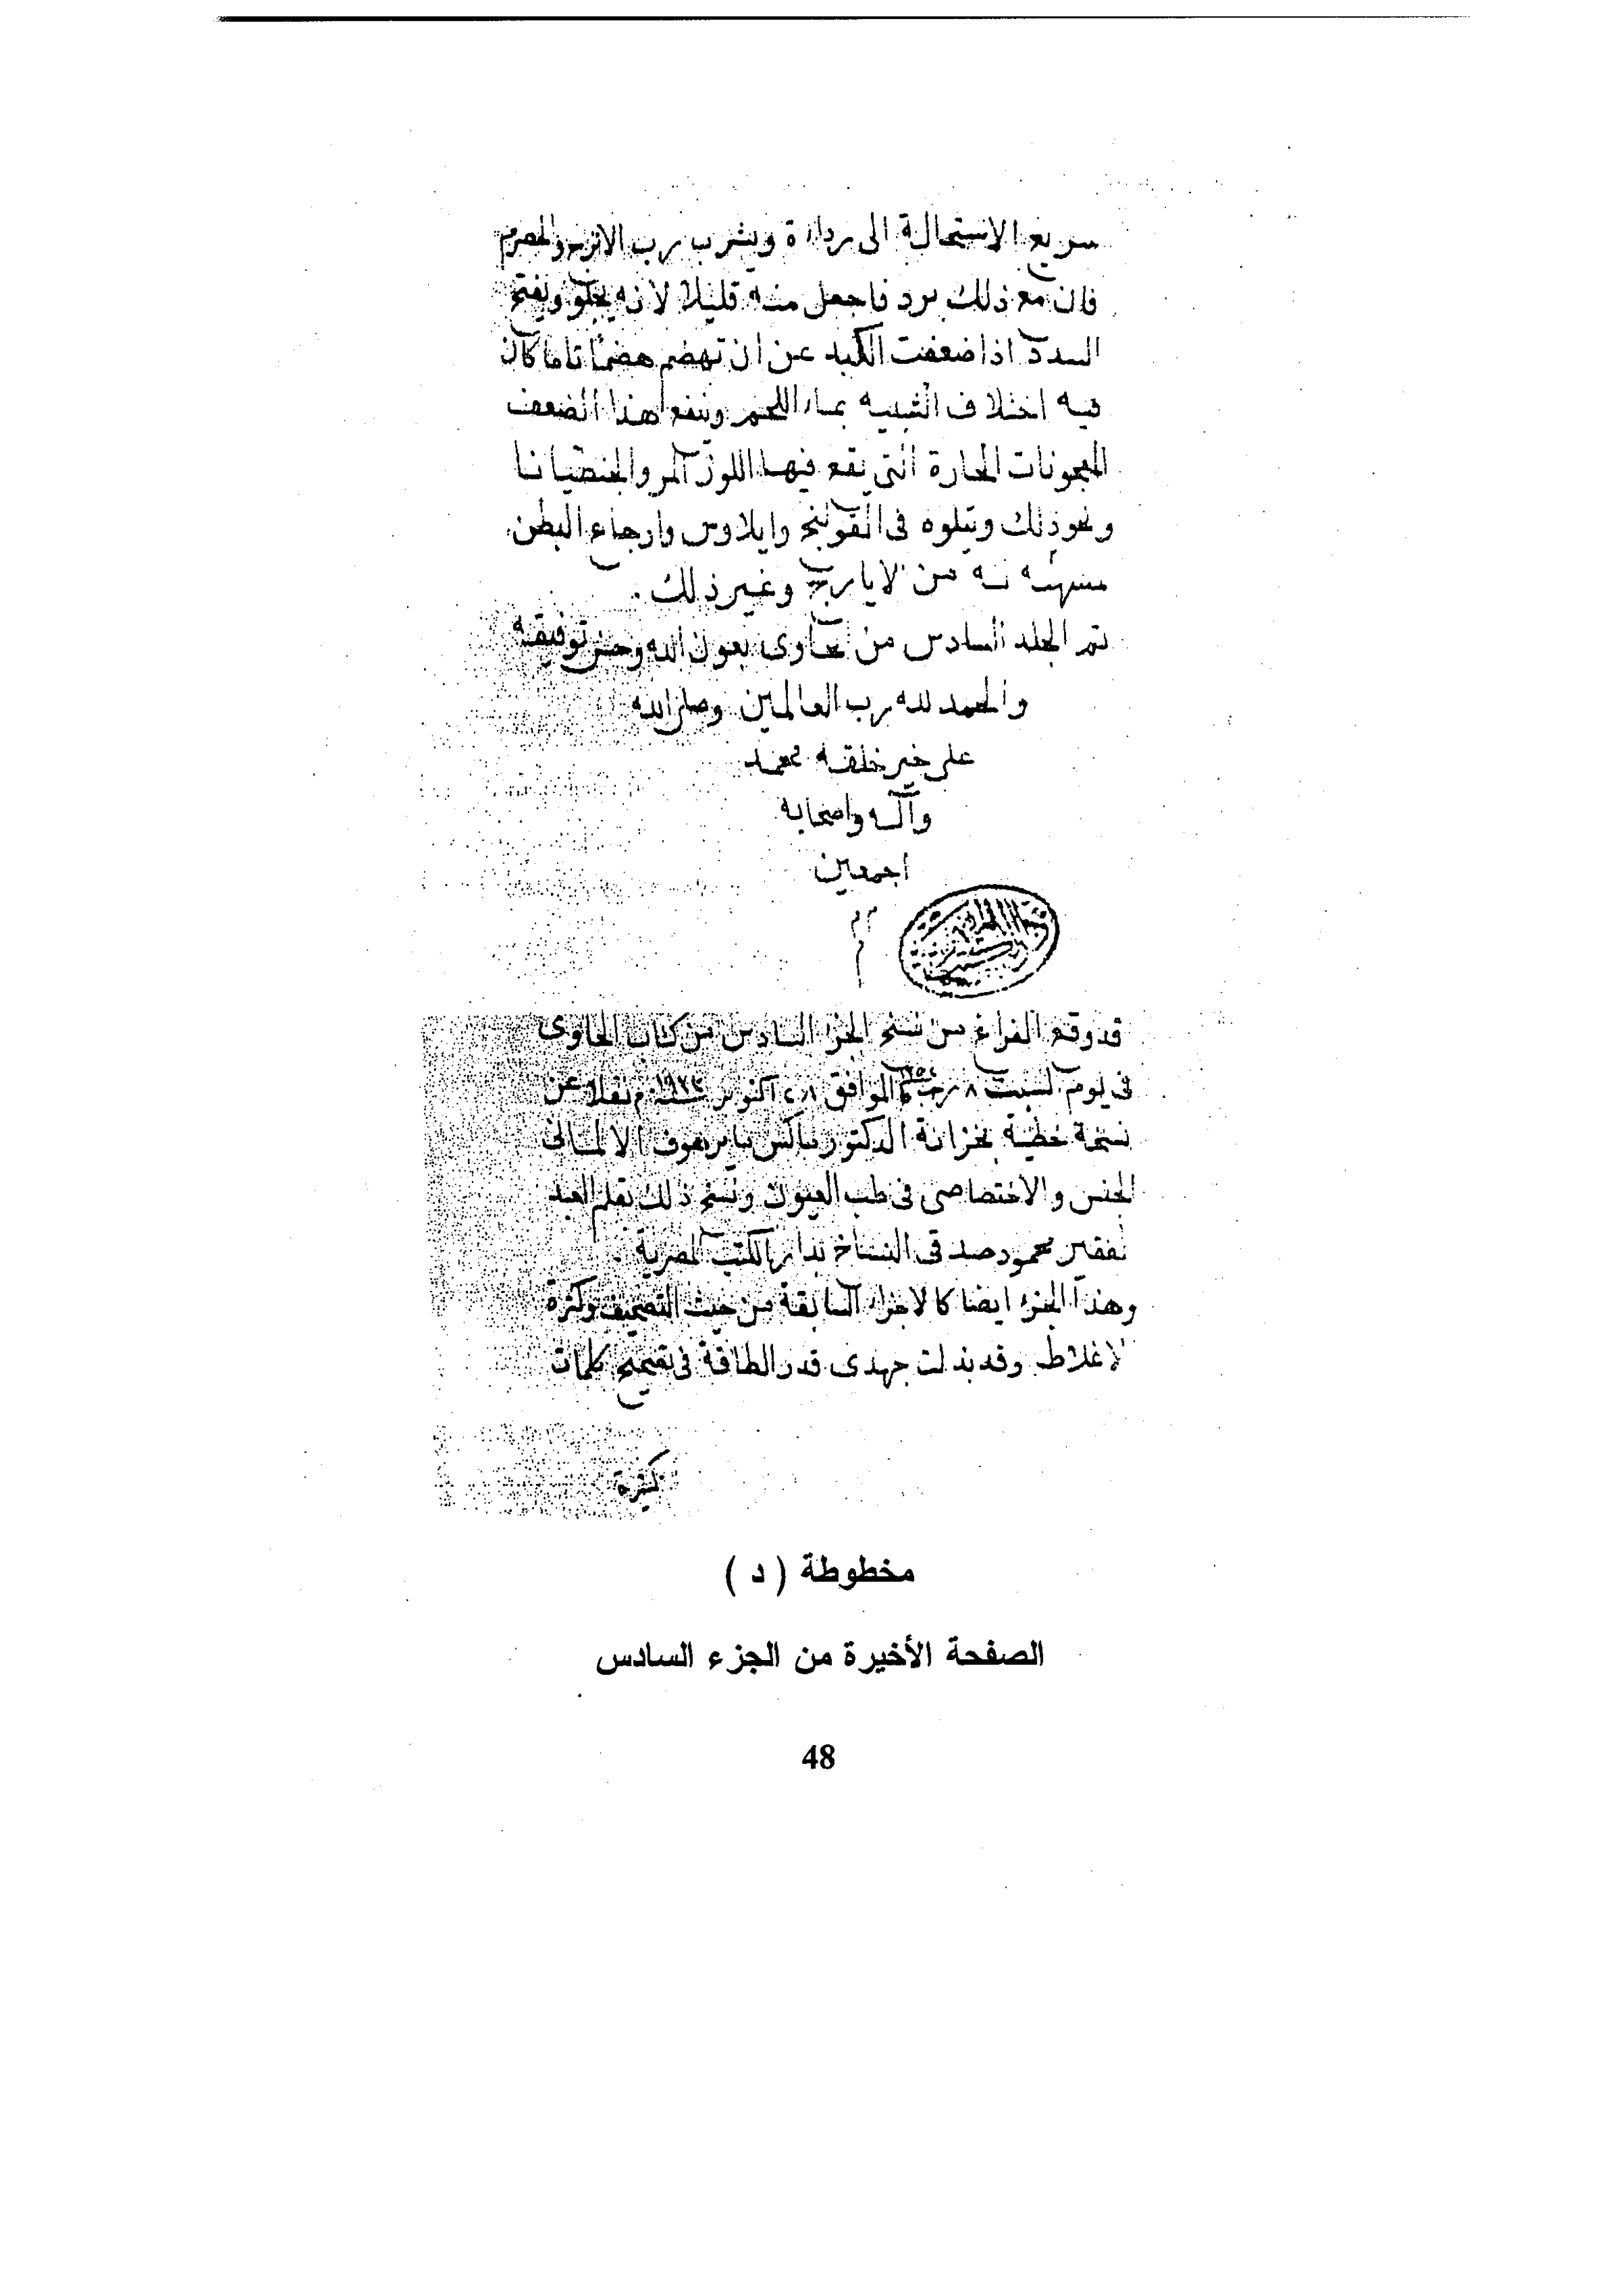 سريع الاستحالة الى رداءة ويشرب رب الاترج والحصرم
فان مع ذلك برد فاجعل منه قليلا لانه يجلو ويفتح
السدد اذا ضعفت الكبد عن ان تهضم هضما تاما كان
فيه اختلاف الشبيه بماء اللحم وينفع هذا الضعف
المعجونات الحارة التى يقع فيها اللوز المر والجنطيانا
ونحو ذلك ويتلوه فى القولنج وايلاوس واوجاع البطن
مسهلة من الايارج وغير ذلك .
تم الجلد السادس من الحاوى بعون الله وحسن توفيقه
والحمد لله رب العالمين وصلى الله
على خير خلقه محمد
وآله واصحابه
اجمعين
م م
قد وقع الفراغ من نسخ الجزء السادس من كتاب الحاوى
فى يوم السبت ٨ رجب الموافق اكتوبر نقلا عن
نسخة خطية بخزانة الدكتور ماكس مايرهوف الالمانى
الجنس والاختصاصى فى طب العيون ونسخ ذلك بقلم العبد
الفقير محمود صدقى النساخ بدار الكتب المصرية .
وهذا الجزء ايضا كالاجزاء السابقة من حيث التصحيف وكثرة
الاغلاط وقد بذلت جهدى قدر الطاقة فى تصحيح كلمات
كثيرة
مخطوطة ( د )
الصفحة الأخيرة من الجزء السادس
48